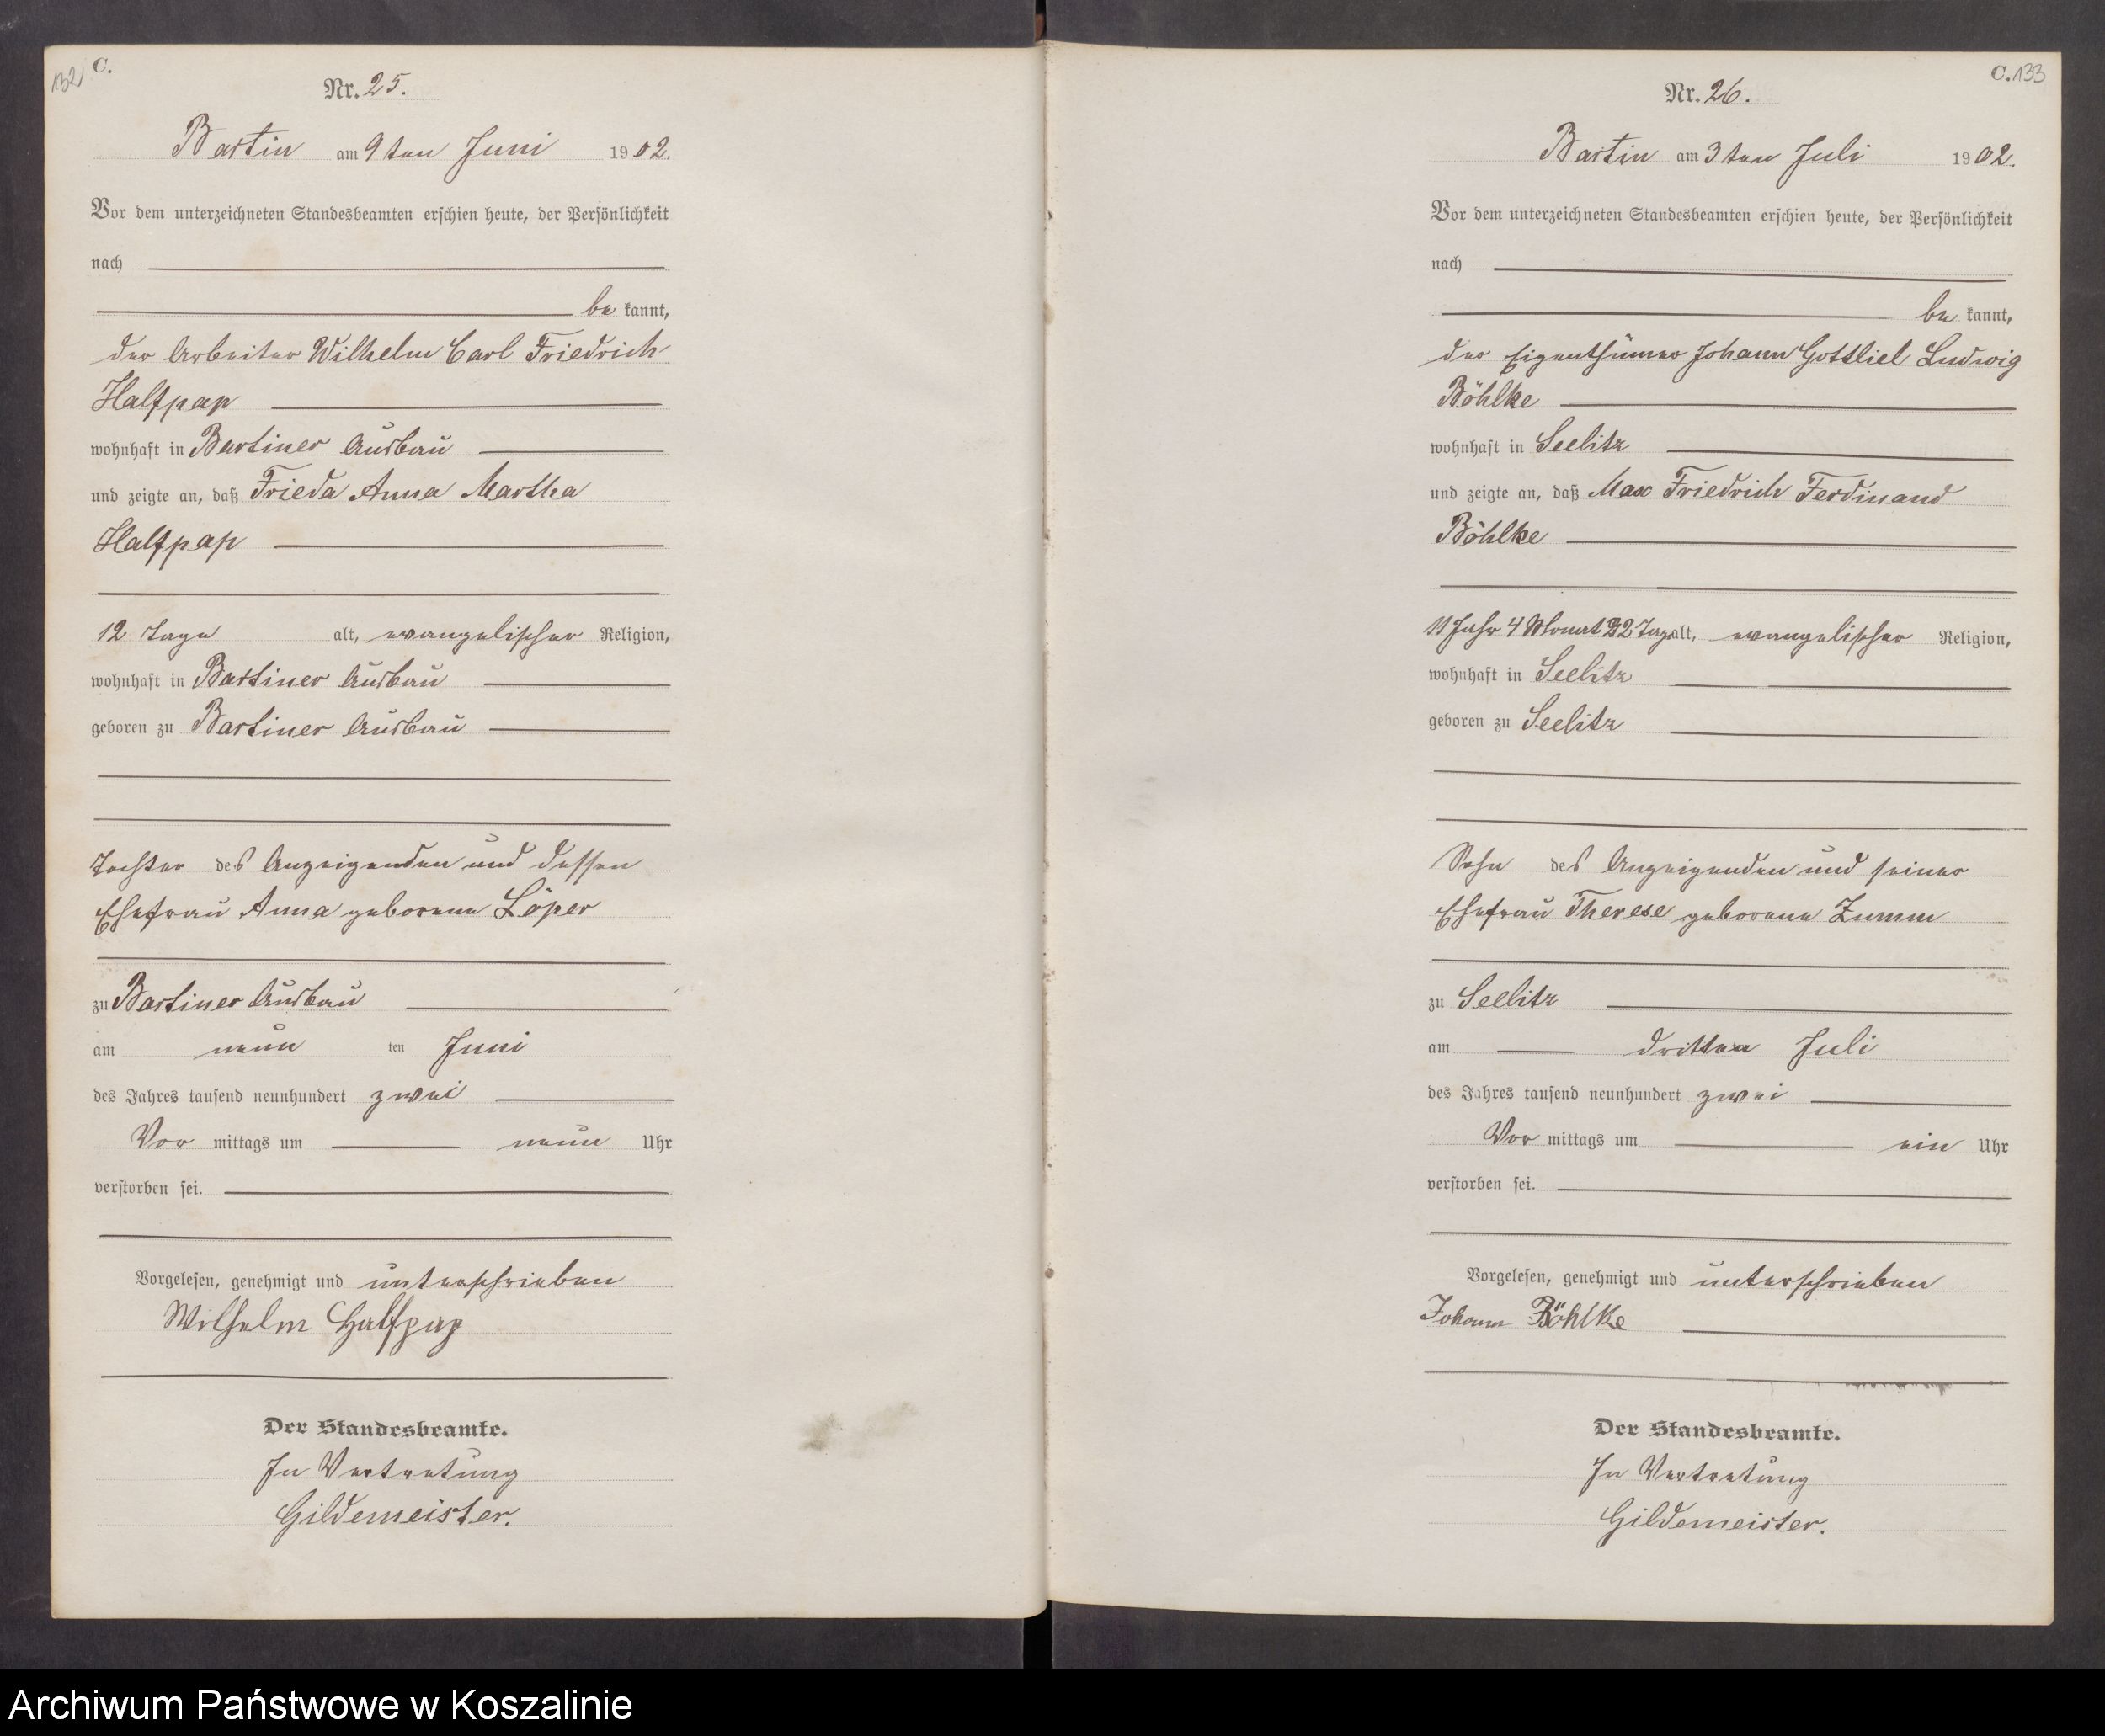 132 C.
Nr. 25.
Bartin am 9ten Juni 1902.
Vor dem unterzeichneten Standesbeamten erschien heute, der Persönlichkeit
nach
be kannt,
der Arbeiter Wilhelm Carl Friedrich
Halfpap
wohnhaft in Bartiner Ausbau
und zeigte an, daß Frieda Anna Martha
Halfpap
12 Tage alt, evangelischer Religion,
wohnhaft in Bartiner Ausbau
geboren zu Bartiner Ausbau
Tochter des Anzeigenden und dessen
Ehefrau Anna geborene Löper
zu Bartiner Ausbau
am neun ten Juni
des Jahres tausend neunhundert zwei
Vor mittags um neun Uhr
verstorben sei.
Vorgelesen, genehmigt und unterschrieben
Wilhelm Halfpap
Der Standesbeamte.
In Vertretung
Gildemeister.
C. 133
Nr. 26.
Bartin am 3ten Juli 1902.
Vor dem unterzeichneten Standesbeamten erschien heute, der Persönlichkeit
nach
be kannt,
der Eigenthümer Johann Gottlieb Ludwig
Böhlke
wohnhaft in Seelitz
und zeigte an, daß Max Friedrich Ferdinand
Böhlke
11 Jahr 4 Monat 22 Tag alt, evangelischer Religion,
wohnhaft in Seelitz
geboren zu Seelitz
Sohn des Anzeigenden und seiner
Ehefrau Therese geborene Zumm
zu Seelitz
am dritten Juli
des Jahres tausend neunhundert zwei
Vor mittags um ein Uhr
verstorben sei.
Vorgelesen, genehmigt und unterschrieben
Johann Böhlke
Der Standesbeamte.
In Vertretung
Gildemeister.
Archiwum Państwowe w Koszalinie